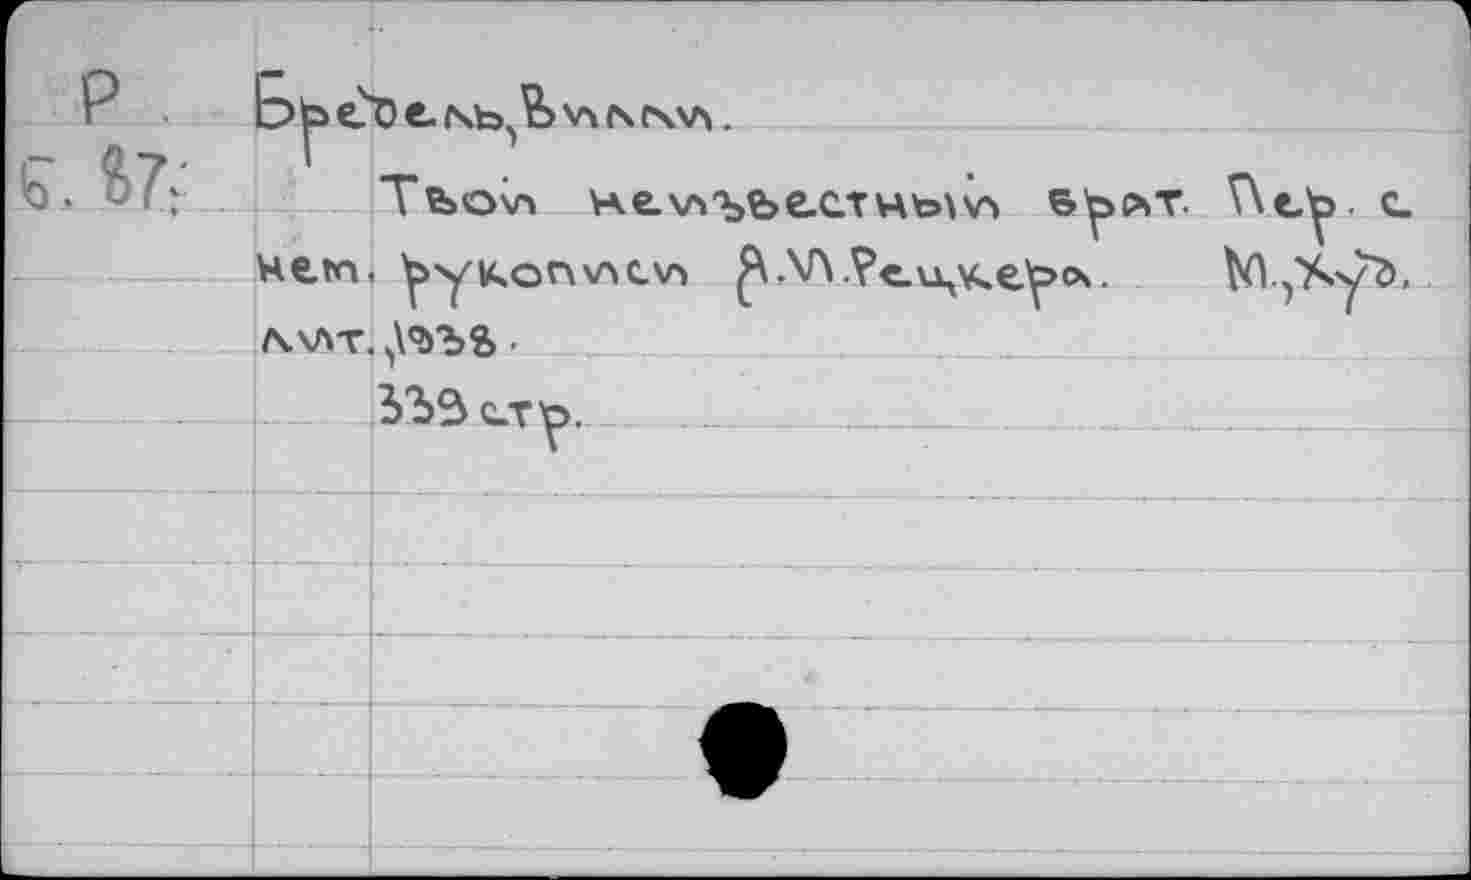 Р. Бредель, Вилли.
Б. 87; Твой неизвестный брат. Пер. с
нем. рукописи А.И.Рецкера. М., Худ.
лит., 1938.
333 стр.